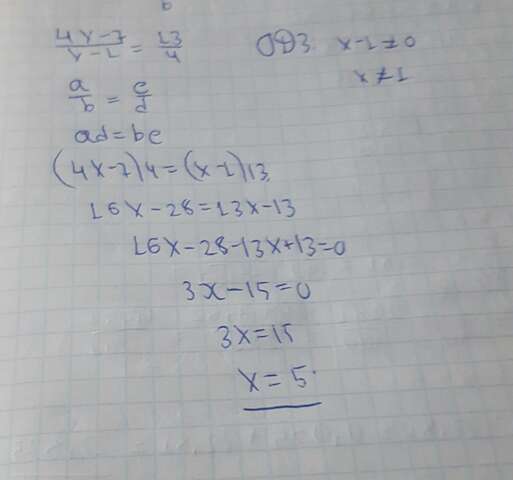 b
4x-7/x-1 = 13/4 ОДЗ x-1≠0
a/b = c/d x≠1
ad=bc
(4x-7)4=(x-1)13
16x-28=13x-13
16x-28-13x+13=0
3x-15=0
3x=15
x=5.